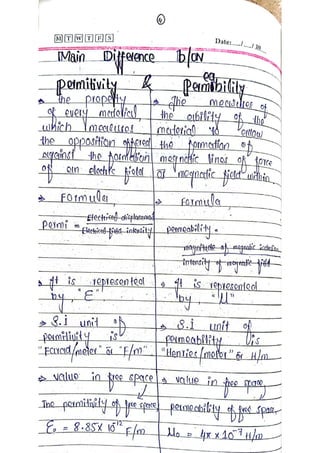 6
M T W T F S
Date:__/__/20__
Main Difference b/w
Permitivity & Permibility
eg
→ The property of every material, which measures the opposition offered against the formation of an electric field
→ The measures of the ability of the material to allow the formation of megnetic lines of force or megnetic field within.
→ Formula,
Permi = Electrical displacement / Electrical field intensity
→ Formula
permeability = magnitude of magnetic / intensity of magnetic field
→ It is represented by, "ε"
→ It is represented by, "μ"
→ S.i unit of permitivity is "Farad/meter" or "F/m"
→ S.i unit of permeability is "Henries/meter" or H/m
→ value in free space
The permitivity of free space,
ε₀ = 8.85 x 10¹² F/m
→ value in free space,
permeability of free space,
μ₀ = 4π x 10⁻⁷ H/m